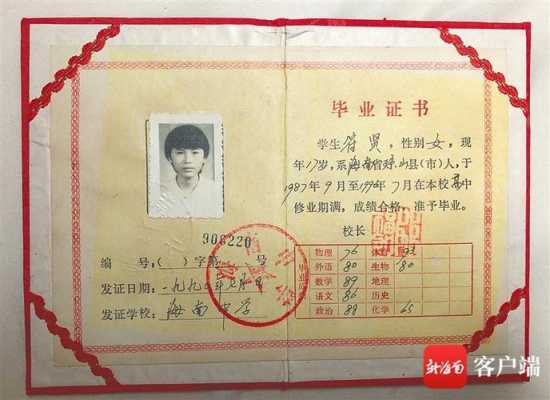 毕业证书
学生符贤，性别女，现
年17岁，系海南省琼山县(市)人，于
1987年9月至1990年7月在本校高中
修业期满，成绩合格，准予毕业。
校长
908220
编 号：( )字第 号
发证日期：一九九〇年七月 日
发证学校：海南中学
毕业成绩
物理 76 体育
外语 80 生物 80
数学 89 地理
语文 86 历史
政治 88 化学 65
新海南 客户端